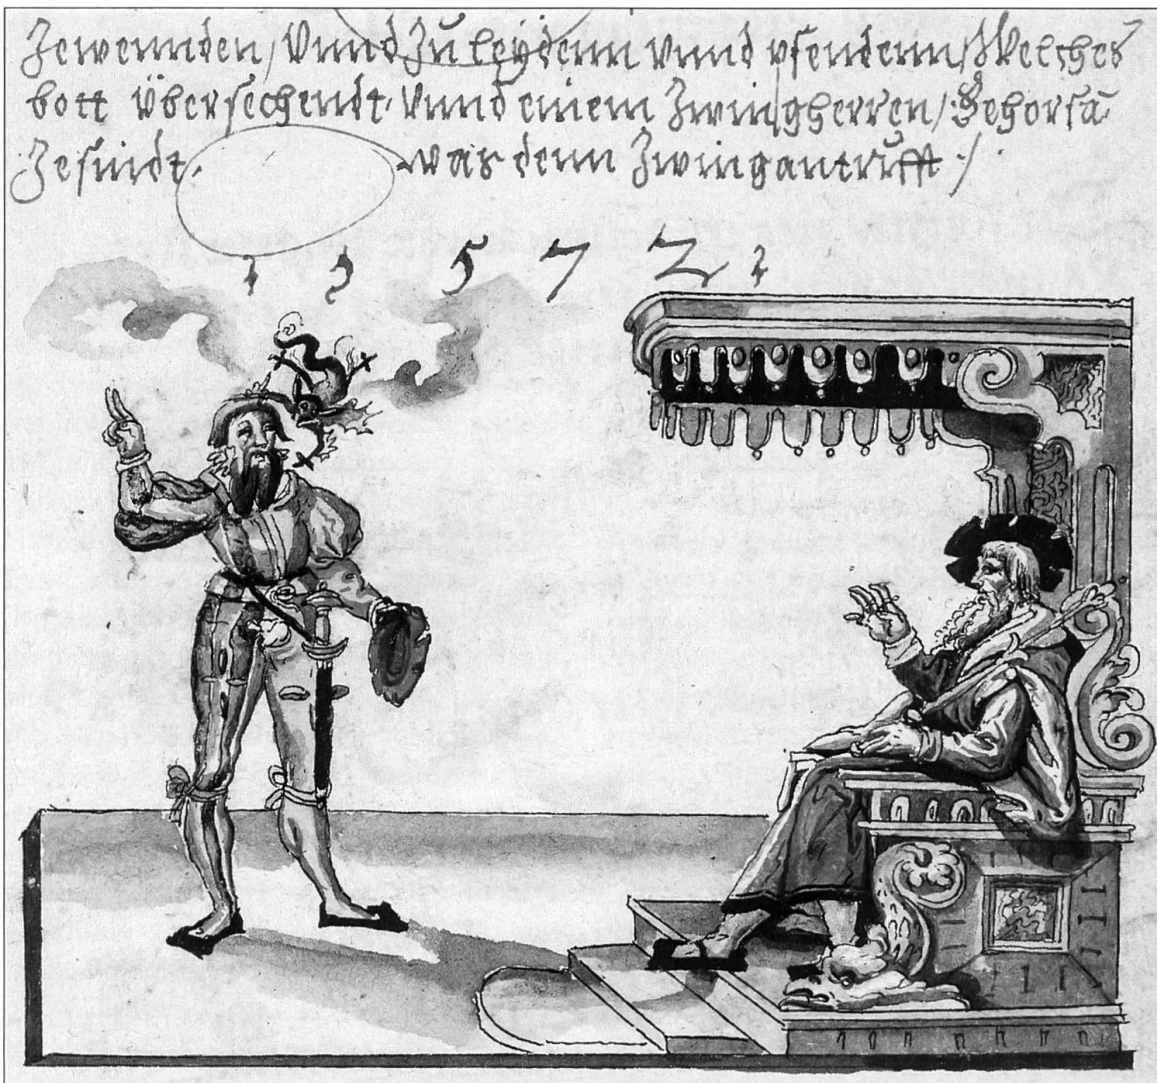 Zewennden / Vnnd Zu leydenn vnnd vsendenn / Welches
bott übersechendt. Vnnd einem Zwingherren / Gehorsā
Zesindt. was denn Zwingantrifft ./
1 5 7 2